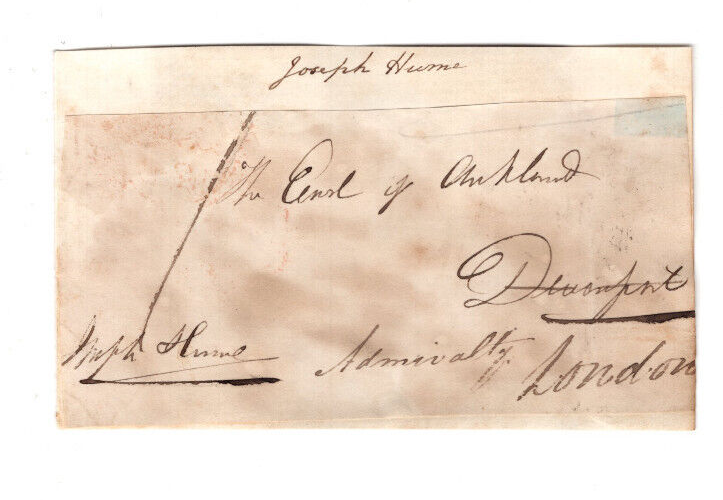 Joseph Hume
The Earl of Aukland
Devonport
Joseph Hume
Admiralty.
London